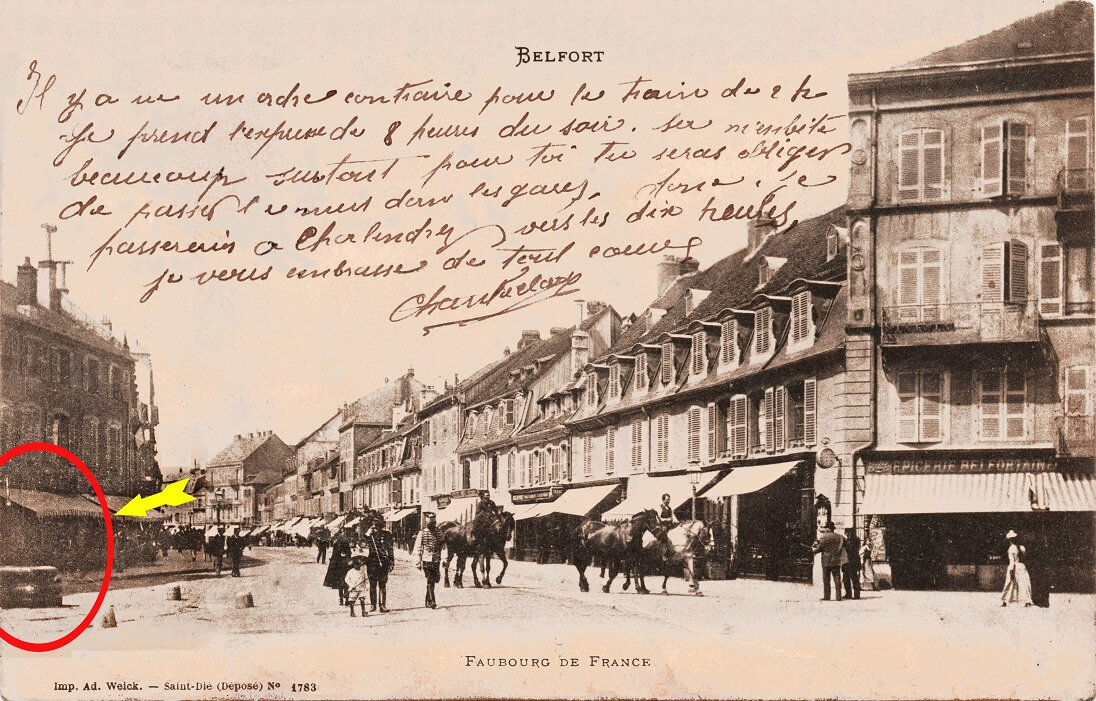 BELFORT
Il y a eu un ordre contraire pour le train de 2 h
Je prend l'express de 8 heures du soir. Sa m'embête
beaucoup surtout pour toi tu seras obliger
de passer le nuit dans les gares, donc je
passerais a Chalindrey vers les dix heures,
je vous embrasse de tout coeur
EPICERIE BELFORTAINE
FAUBOURG DE FRANCE
Imp. Ad. Weick. — Saint-Dié (Déposé) No 1783